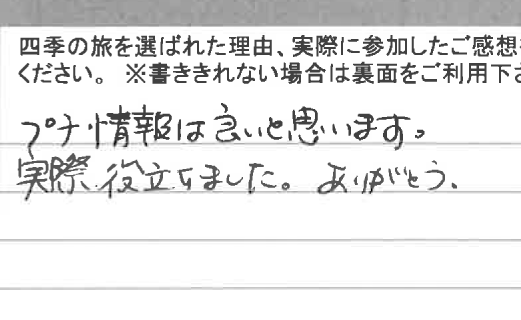 四季の旅を選ばれた理由、実際に参加したご感想
ください。 ※書ききれない場合は裏面をご利用下
プチ情報は良いと思います。
実際、役立ちました。ありがとう.